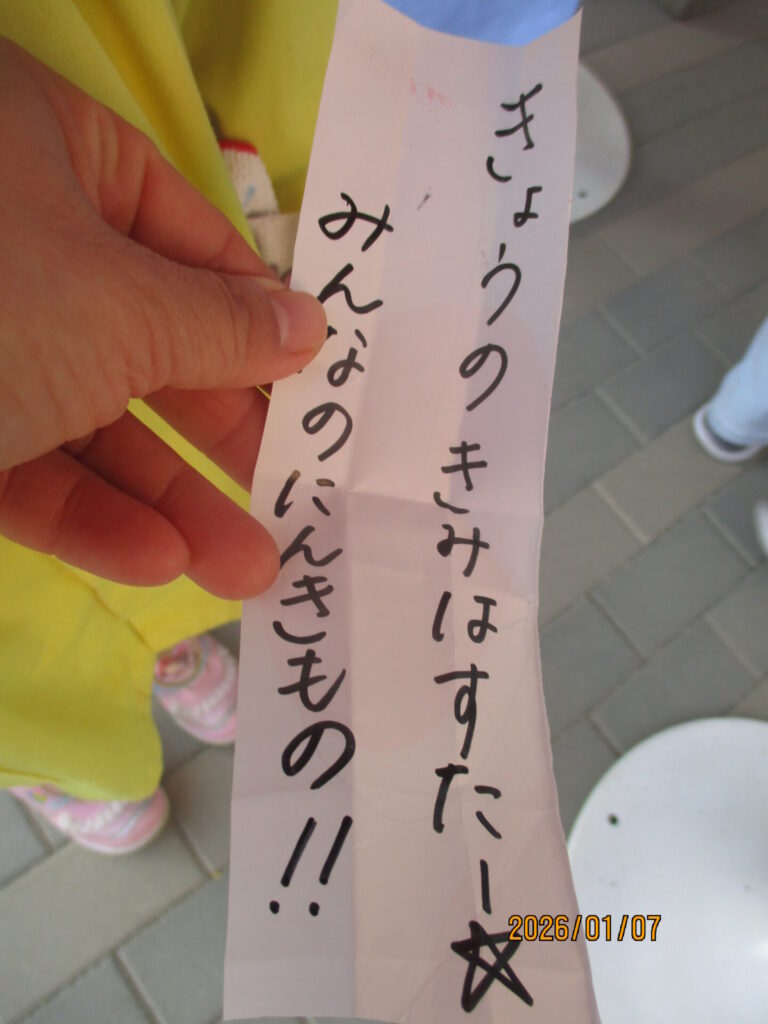 きょうのきみはすたー☆
みんなのにんきもの!!
2026/01/07